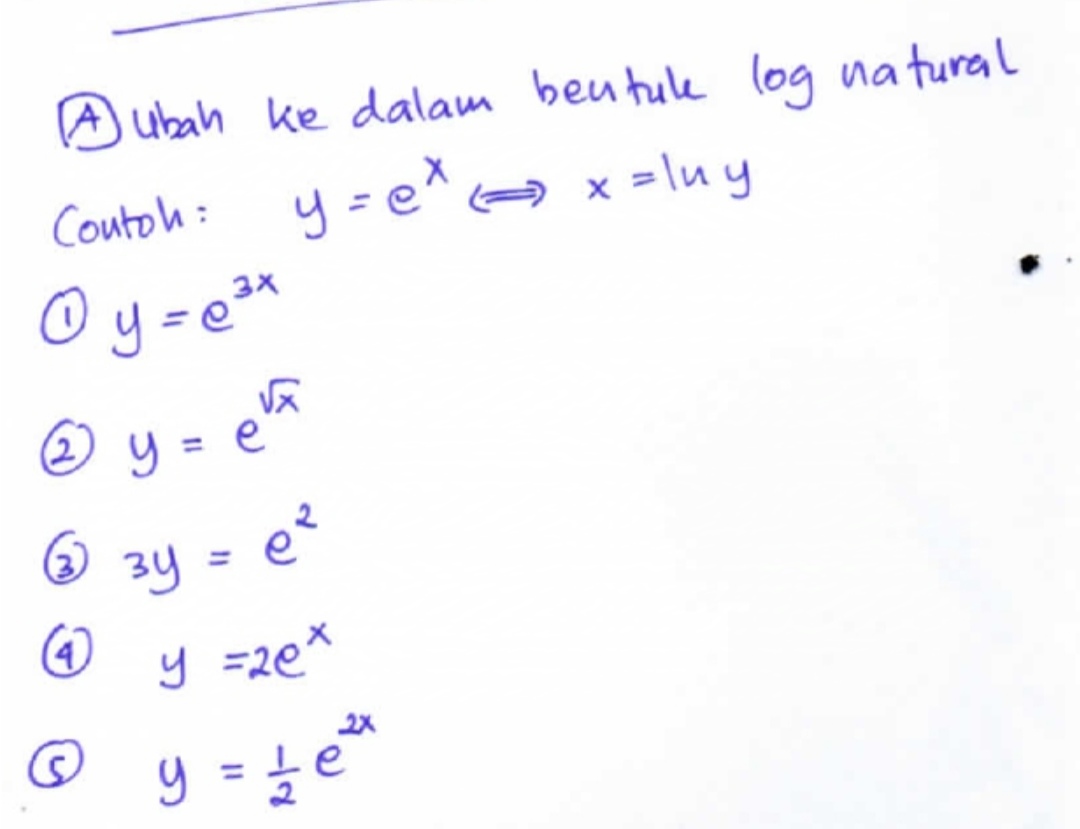 Ⓐ Ubah ke dalam bentuk log natural
Contoh: y = eˣ ⟺ x = ln y
① y = e³ˣ
② y = e^√x
③ 3y = e²
④ y = 2eˣ
⑤ y = ½ e²ˣ